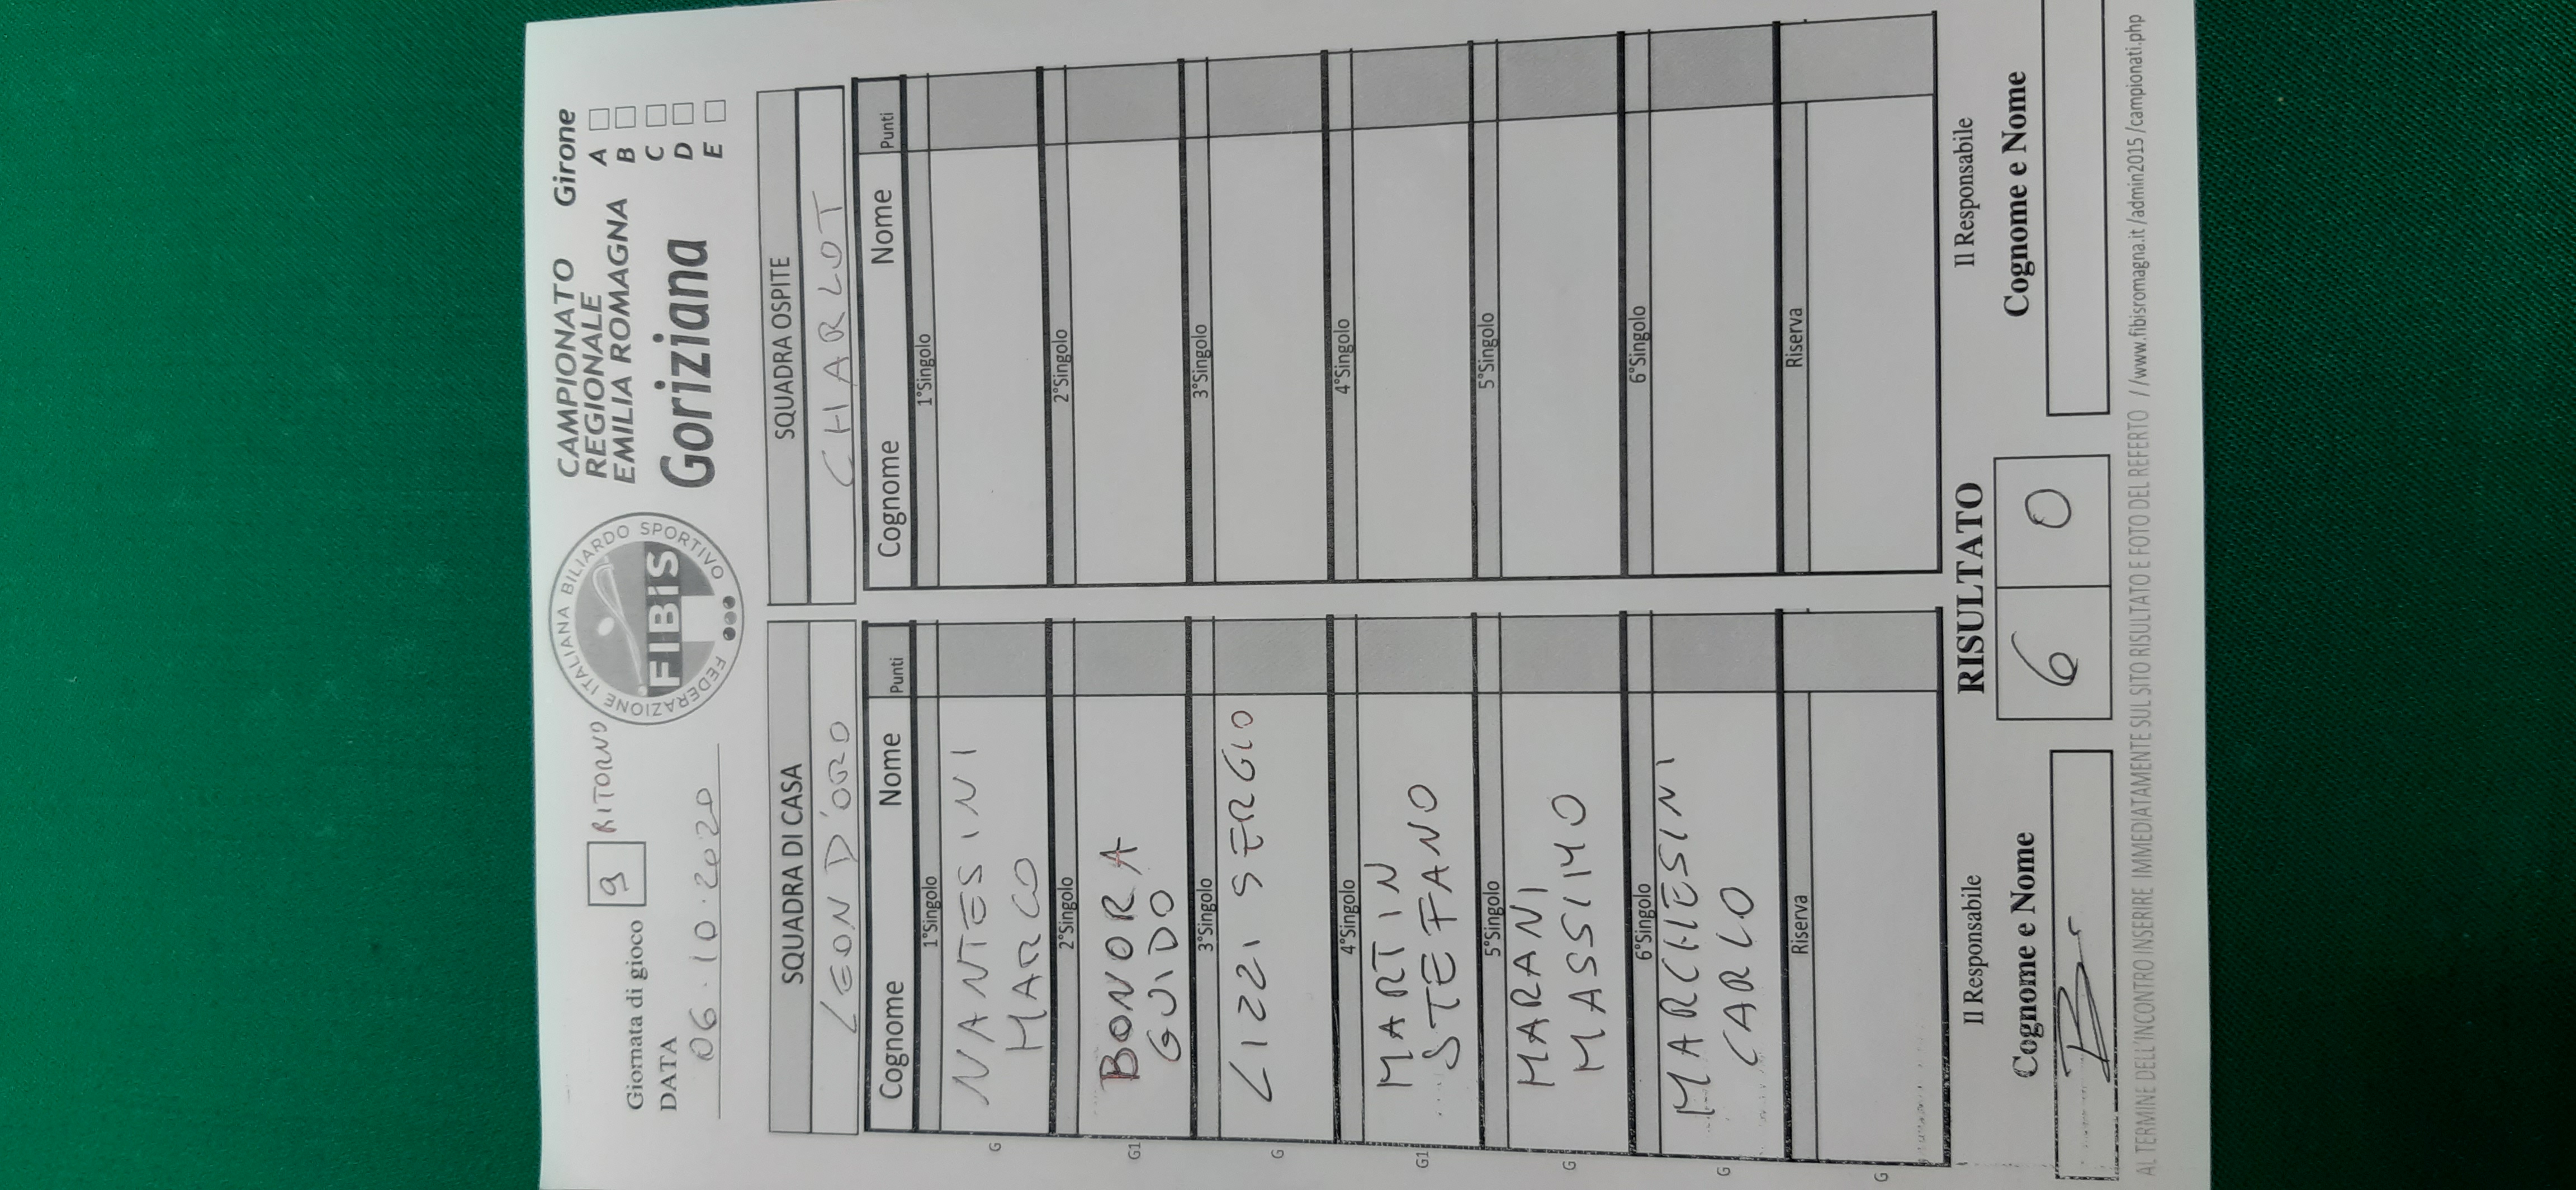 Giornata di gioco 9 RITORNO
DATA
06.10.2020
FEDERAZIONE ITALIANA BILIARDO SPORTIVO
FIBiS
CAMPIONATO
REGIONALE
EMILIA ROMAGNA
Goriziana
Girone
A
B
C
D
E
SQUADRA DI CASA
LEON D'ORO
Cognome Nome Punti
1°Singolo
G
NANTESINI
MARCO
2°Singolo
G1
BONORA
GUIDO
3°Singolo
G
LIZZI SERGIO
4°Singolo
G1
MARTIN
STEFANO
5°Singolo
G
MARANI
MASSIMO
6°Singolo
G
MARCHESINI
CARLO
Riserva
G
SQUADRA OSPITE
CHARLOT
Cognome Nome Punti
1°Singolo
2°Singolo
3°Singolo
4°Singolo
5°Singolo
6°Singolo
Riserva
Il Responsabile
Cognome e Nome
RISULTATO
6 0
Il Responsabile
Cognome e Nome
AL TERMINE DELL'INCONTRO INSERIRE IMMEDIATAMENTE SUL SITO RISULTATO E FOTO DEL REFERTO //www.fibisromagna.it/admin2015/campionati.php